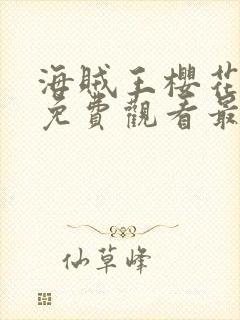 海賊王櫻花
免費觀看最
仙草峰